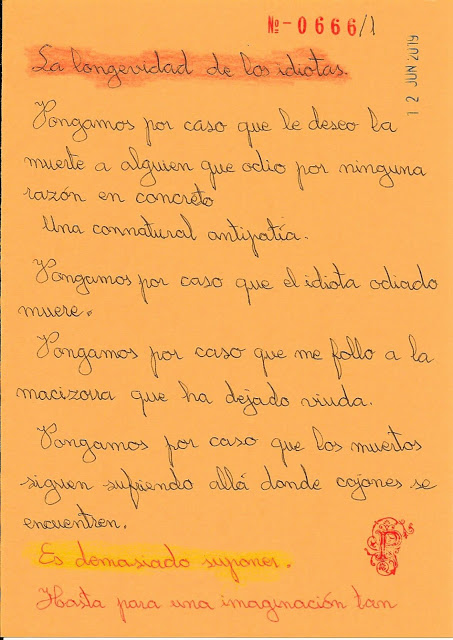 Nº-0666/1
12 JUN 2019
La longevidad de los idiotas.
Pongamos por caso que le deseo la
muerte a alguien que odio por ninguna
razón en concreto
Una connatural antipatía.
Pongamos por caso que el idiota odiado
muere.
Pongamos por caso que me follo a la
macizorra que ha dejado viuda.
Pongamos por caso que los muertos
siguen sufriendo allá donde cojones se
encuentren.
P
Es demasiado suponer.
Hasta para una imaginación tan